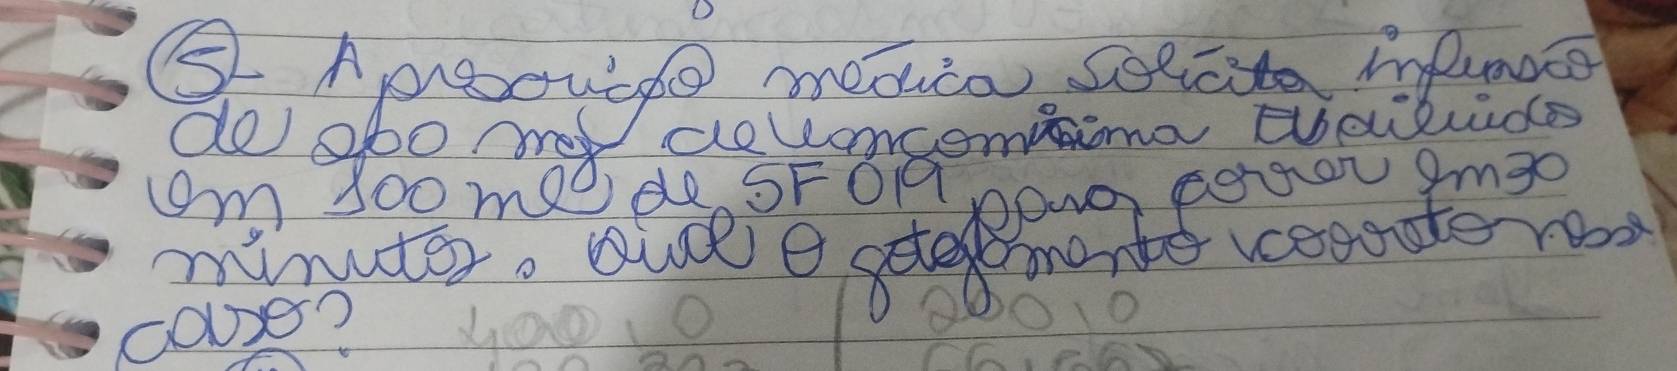 5- A prescrição médica solicita infusão
de 960 mg de vancomicima EV diluido
em 100 ml de SF 0,9 para correr em 30
minutos. Qual o gotejamento correto nesse
caso?
400,0 | 2000,0